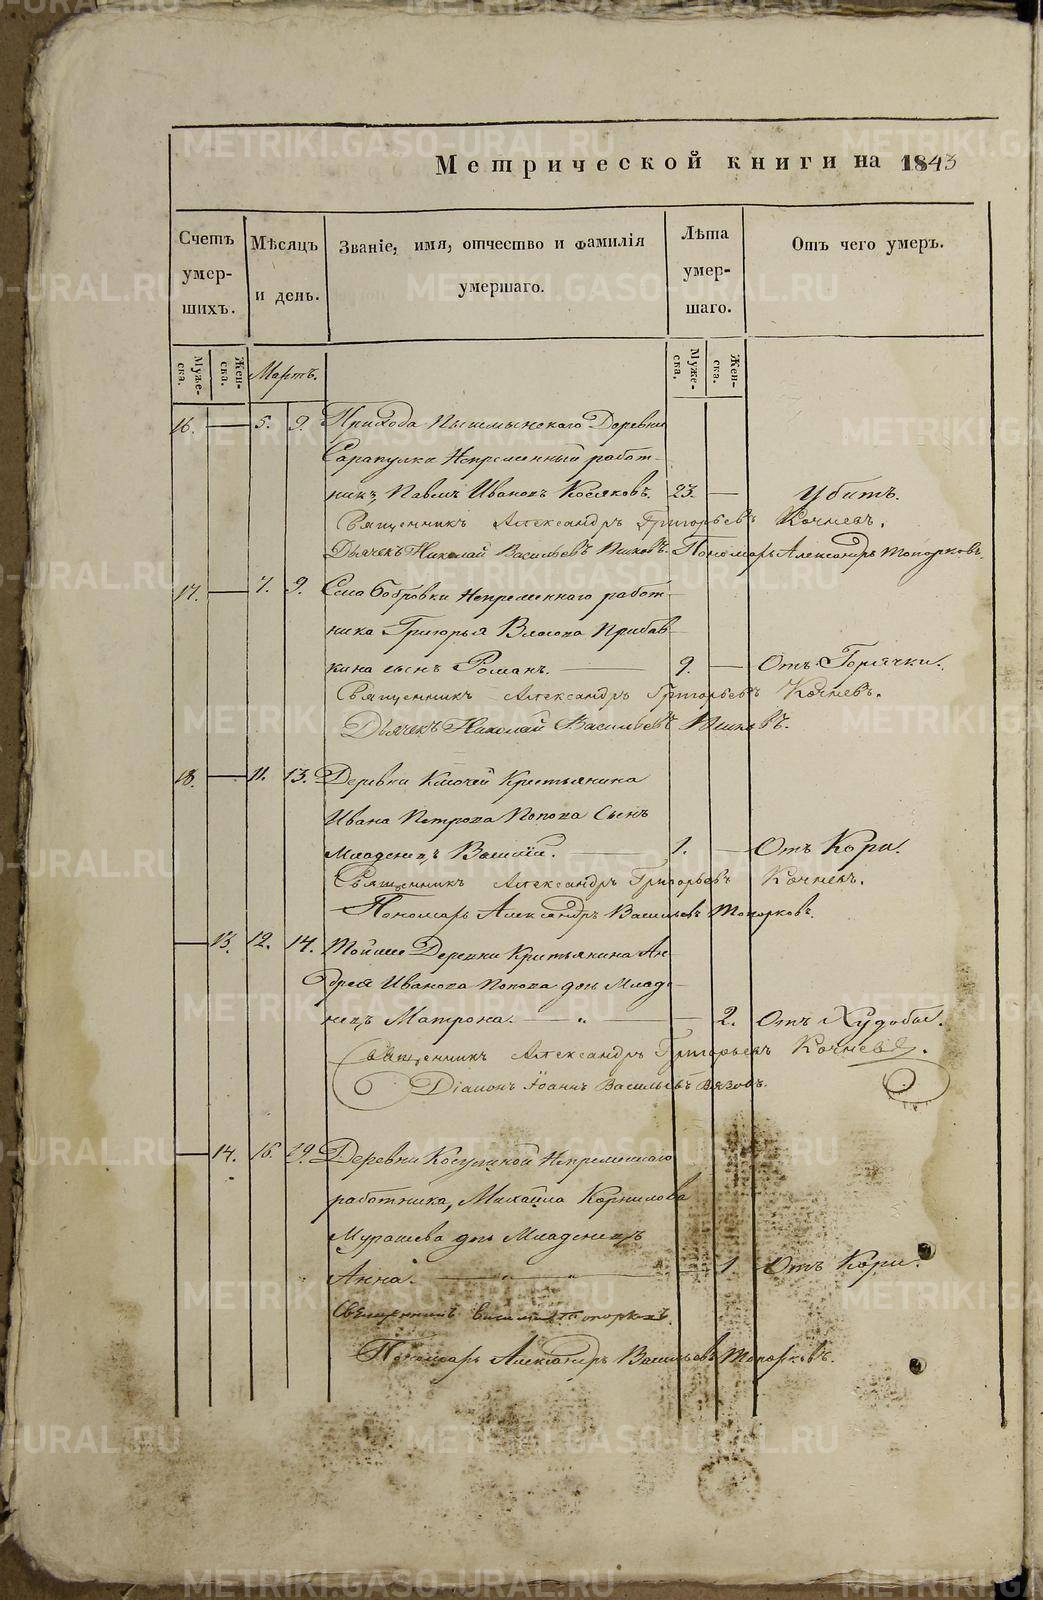 Метрической книги на 1843
Счетъ умер-шихъ.
Мѣсяцъ и день.
Званіе, имя, отчество и фамилія умершаго.
Лѣта умер-шаго.
Отъ чего умеръ.
Муже-ска.
Жен-ска.
Мартъ.
Муже-ска.
Жен-ска.
16. — 5. 9. Прихода Пышминскаго Деревни
Сарапулки Непременный работ-
никъ, Павелъ Ивановъ Косяковъ. 23. — Убитъ.
Священникъ Александръ Григорьевъ Кочневъ.
Дьячекъ Николай Васильевъ Пономарь Александръ Топорковъ.
17. — 7. 9. Села Бобровки Непременнаго работ-
ника Григорья Власова Прибав-
кина сынъ Романъ. — 9. — Отъ Горячки.
Священникъ Александръ Григорьевъ Кочневъ.
Дьячекъ Николай Васильевъ
18. — 11. 13. Деревни Ключей Крестьянина
Ивана Петрова Попова Сынъ
Младенецъ Василій. — 1. — Отъ Кори.
Священникъ Александръ Григорьевъ Кочневъ.
Пономарь Александръ Васильевъ Топорковъ.
— 13. 12. 14. Тойже Деревни Крестьянина Ан-
дрея Иванова Попова дочь Млад-
нецъ Матрона. — 2. Отъ Худобы.
Священникъ Александръ Григорьевъ Кочневъ.
Діаконъ Іоаннъ Васильевъ Вязовъ.
— 14. 16. 19. Деревни Косулиной Непременнаго
работника, Михайла Корнилова
Мурашева дочь Младенецъ
Анна. — 1. Отъ Кори.
Священникъ Василій Топорковъ.
Пономарь Александръ Васильевъ Топорковъ.
METRIKI.GASO-URAL.RU